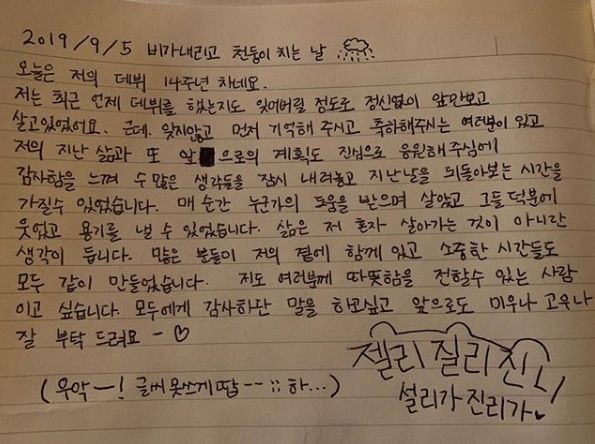 2019/9/5 비가내리고 천둥이 치는 날
오늘은 저의 데뷔 14주년 차네요.
저는 최근 언제 데뷔를 했는지도 잊어버릴 정도로 정신없이 앞만보고
살고있었어요. 근데. 잊지않고 먼저 기억해 주시고 축하해주시는 여러분이 있고
저의 지난 삶과 또 앞으로의 계획도 진심으로 응원해 주심에
감사함을 느껴 수 많은 생각들을 잠시 내려놓고 지난날을 뒤돌아보는 시간을
가질수 있었습니다. 매 순간 누군가의 도움을 받으며 살았고 그들 덕분에
웃었고 용기를 낼 수 있었습니다. 삶은 저 혼자 살아가는 것이 아니란
생각이 듭니다. 많은 분들이 저의 곁에 함께 있고 소중한 시간들도
모두 같이 만들었습니다. 저도 여러분께 따뜻함을 전할수 있는 사람
이고 싶습니다. 모두에게 감사하단 말을 하고싶고 앞으로도 미우나 고우나
잘 부탁 드려요 - ♡
젤리 질리 진니
설리가 진리가♥
(우악ㅡ! 글씨 못쓰게땁--;; 하...)